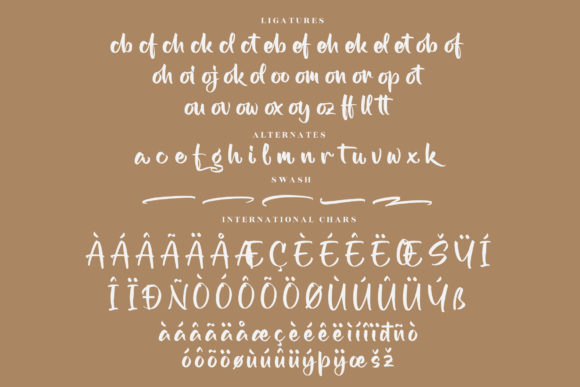 LIGATURES
cb cf ch ck cl ct eb ef eh ek el et ob of
oh oi oj ok ol oo om on or op ot
ou ov ow ox oy oz ff ll tt
ALTERNATES
a c e f g h i l m n r t u v w x k
SWASH
INTERNATIONAL CHARS
ÀÁÂÃÄÅÆÇÈÉÊËŒŠŸÍ
ÎÏÐÑÒÓÔÕÖØÙÚÛÜÝß
àáâãäåæçèéêëìíîïđñò
óôõöøùúûüýþÿœšž